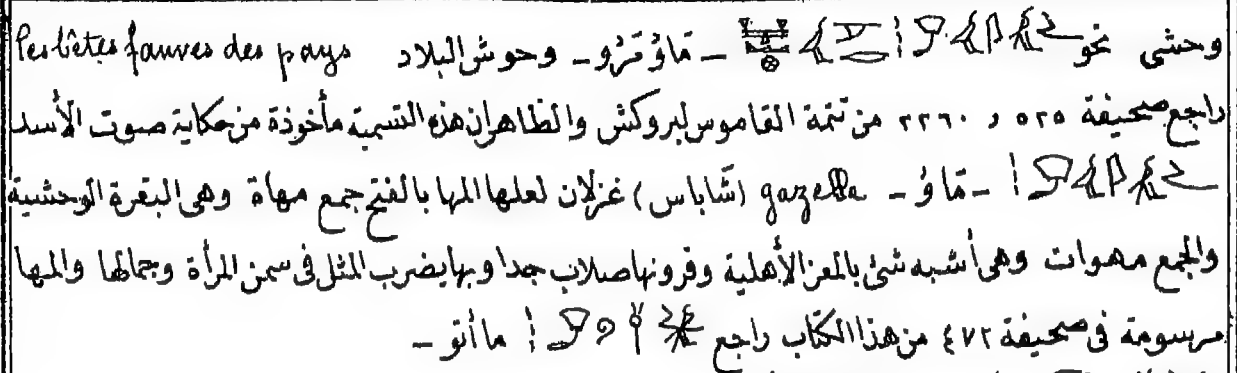 وحشى نحو – مَاوُ مَرُو – وحوش البلاد les bêtes fauves des pays
راجع صحيفة ٥٢٥ و ٢٢٦٠ من تتمة القاموس لبروكش والظاهر ان هذه التسمية مأخوذة من حكاية صوت الأسد
– مَاوُ – gazelle (شاباس) غزلان لعلها المها بالفتح جمع مهاة وهى البقرة الوحشية
والجمع مهوات وهى أشبه شئ بالمعز الأهلية وقرونها صلاب جدا وبها يضرب المثل فى سمن المرأة وجمالها والمها
مرسومة فى صحيفة ٤٧٢ من هذا الكتاب راجع ماأتو –